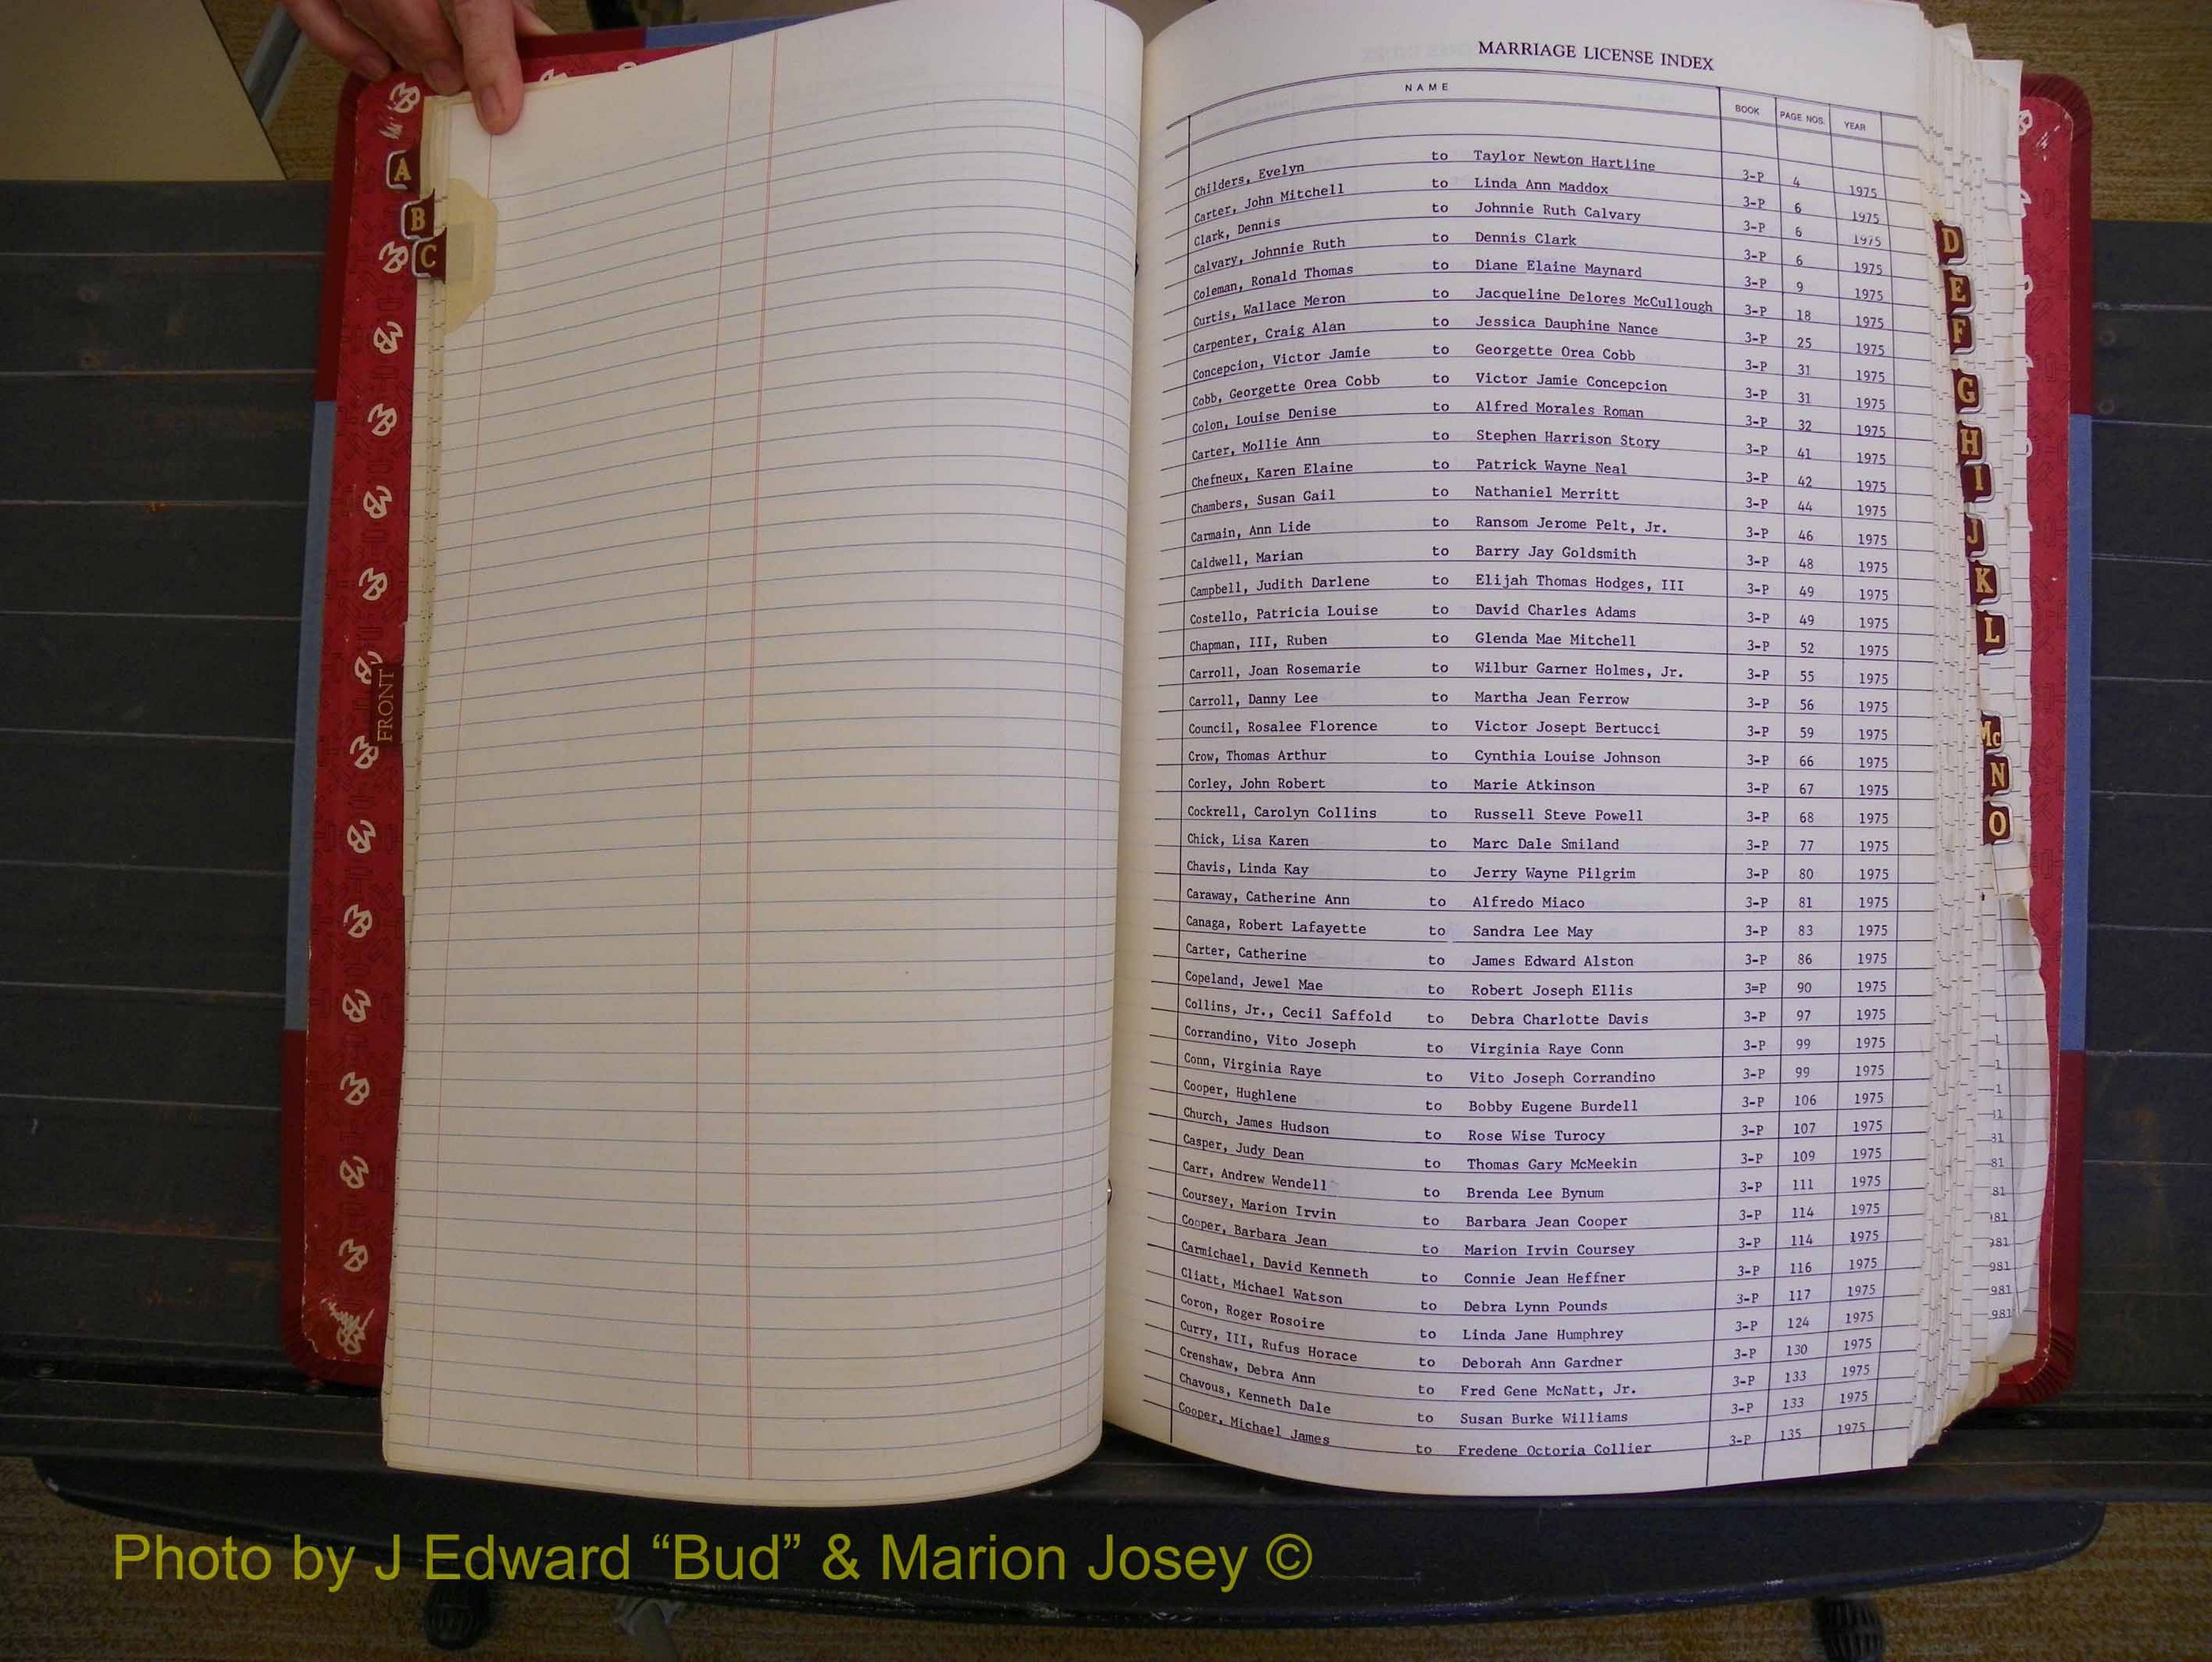 MARRIAGE LICENSE INDEX
NAME BOOK PAGE NOS. YEAR
Childers, Evelyn to Taylor Newton Hartline 3-P 4 1975
Carter, John Mitchell to Linda Ann Maddox 3-P 6 1975
Clark, Dennis to Johnnie Ruth Calvary 3-P 6 1975
Calvary, Johnnie Ruth to Dennis Clark 3-P 6 1975
Coleman, Ronald Thomas to Diane Elaine Maynard 3-P 9 1975
Curtis, Wallace Meron to Jacqueline Delores McCullough 3-P 18 1975
Carpenter, Craig Alan to Jessica Dauphine Nance 3-P 25 1975
Concepcion, Victor Jamie to Georgette Orea Cobb 3-P 31 1975
Cobb, Georgette Orea Cobb to Victor Jamie Concepcion 3-P 31 1975
Colon, Louise Denise to Alfred Morales Roman 3-P 32 1975
Carter, Mollie Ann to Stephen Harrison Story 3-P 41 1975
Chefneux, Karen Elaine to Patrick Wayne Neal 3-P 42 1975
Chambers, Susan Gail to Nathaniel Merritt 3-P 44 1975
Carmain, Ann Lide to Ransom Jerome Pelt, Jr. 3-P 46 1975
Caldwell, Marian to Barry Jay Goldsmith 3-P 48 1975
Campbell, Judith Darlene to Elijah Thomas Hodges, III 3-P 49 1975
Costello, Patricia Louise to David Charles Adams 3-P 49 1975
Chapman, III, Ruben to Glenda Mae Mitchell 3-P 52 1975
Carroll, Joan Rosemarie to Wilbur Garner Holmes, Jr. 3-P 55 1975
Carroll, Danny Lee to Martha Jean Ferrow 3-P 56 1975
Council, Rosalee Florence to Victor Josept Bertucci 3-P 59 1975
Crow, Thomas Arthur to Cynthia Louise Johnson 3-P 66 1975
Corley, John Robert to Marie Atkinson 3-P 67 1975
Cockrell, Carolyn Collins to Russell Steve Powell 3-P 68 1975
Chick, Lisa Karen to Marc Dale Smiland 3-P 77 1975
Chavis, Linda Kay to Jerry Wayne Pilgrim 3-P 80 1975
Caraway, Catherine Ann to Alfredo Miaco 3-P 81 1975
Canaga, Robert Lafayette to Sandra Lee May 3-P 83 1975
Carter, Catherine to James Edward Alston 3-P 86 1975
Copeland, Jewel Mae to Robert Joseph Ellis 3=P 90 1975
Collins, Jr., Cecil Saffold to Debra Charlotte Davis 3-P 97 1975
Corrandino, Vito Joseph to Virginia Raye Conn 3-P 99 1975
Conn, Virginia Raye to Vito Joseph Corrandino 3-P 99 1975
Cooper, Hughlene to Bobby Eugene Burdell 3-P 106 1975
Church, James Hudson to Rose Wise Turocy 3-P 107 1975
Casper, Judy Dean to Thomas Gary McMeekin 3-P 109 1975
Carr, Andrew Wendell to Brenda Lee Bynum 3-P 111 1975
Coursey, Marion Irvin to Barbara Jean Cooper 3-P 114 1975
Cooper, Barbara Jean to Marion Irvin Coursey 3-P 114 1975
Carmichael, David Kenneth to Connie Jean Heffner 3-P 116 1975
Cliatt, Michael Watson to Debra Lynn Pounds 3-P 117 1975
Coron, Roger Rosoire to Linda Jane Humphrey 3-P 124 1975
Curry, III, Rufus Horace to Deborah Ann Gardner 3-P 130 1975
Crenshaw, Debra Ann to Fred Gene McNatt, Jr. 3-P 133 1975
Chavous, Kenneth Dale to Susan Burke Williams 3-P 133 1975
Cooper, Michael James to Fredene Octoria Collier 3-P 135 1975
A
B
C
FRONT
D
E
F
G
H
I
J
K
L
Mc
N
O
Photo by J Edward “Bud” & Marion Josey ©